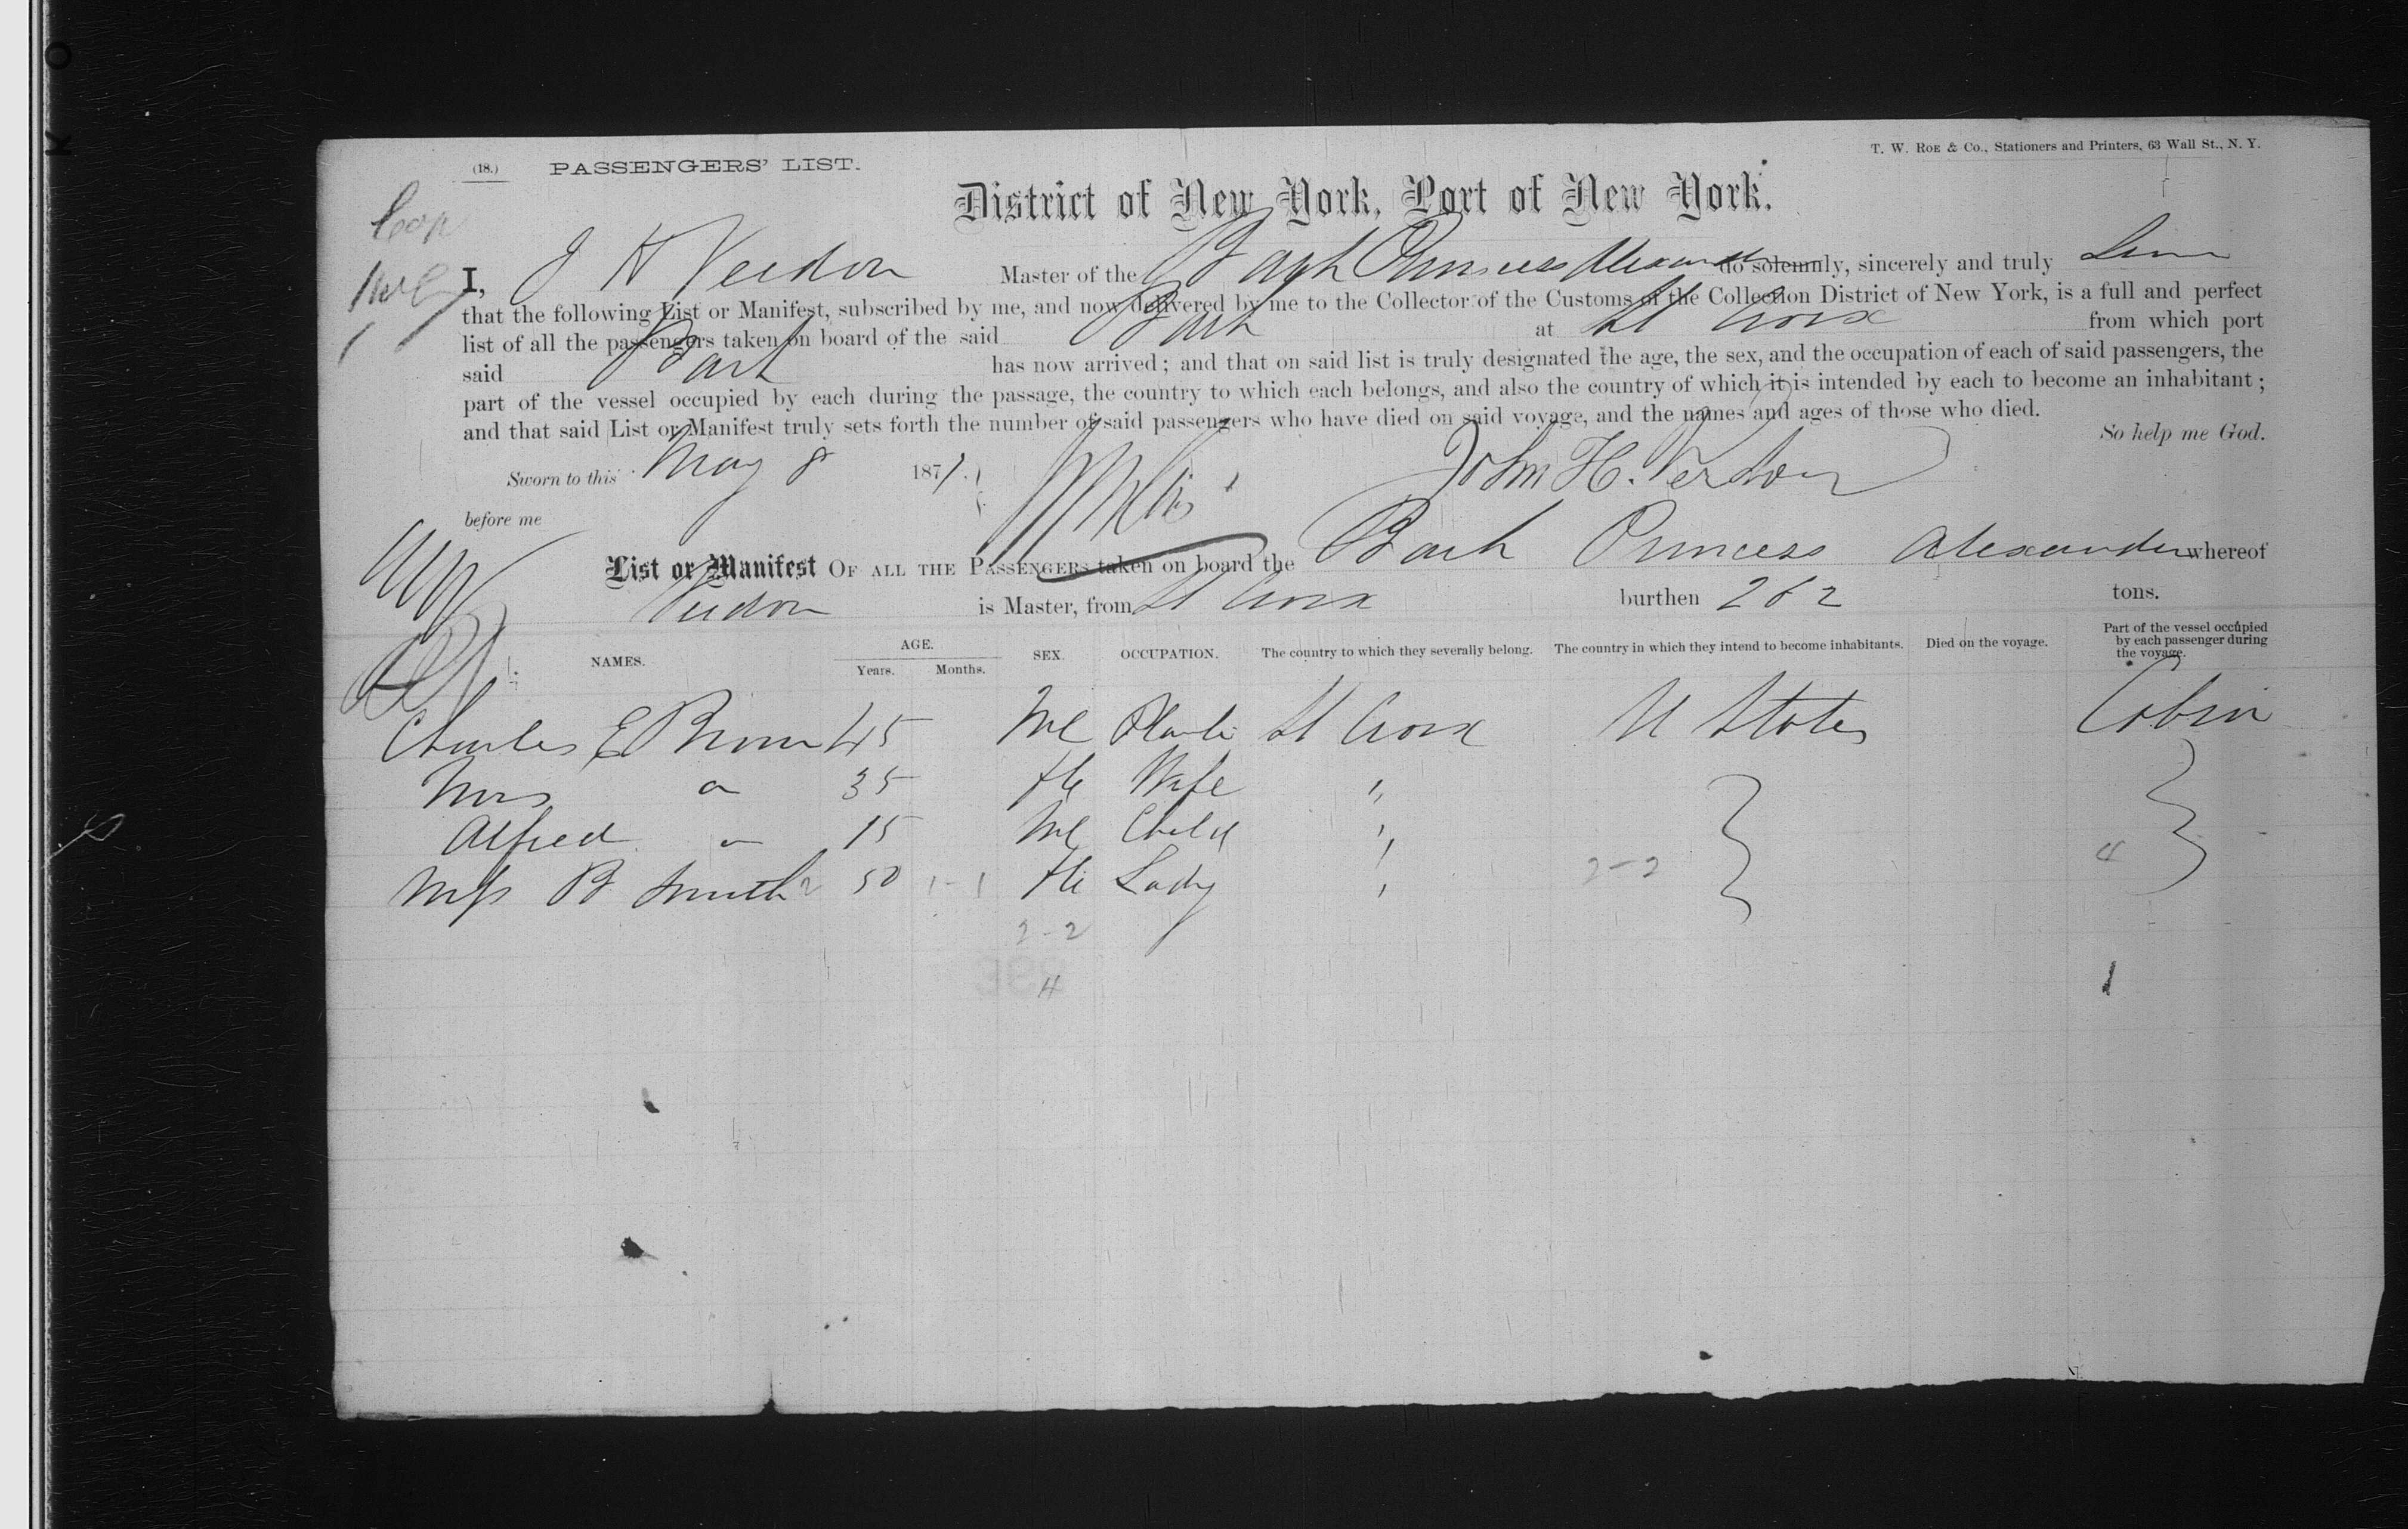 (18.) PASSENGERS' LIST.
T. W. ROE & CO., Stationers and Printers, 63 Wall St., N. Y.
District of New York, Port of New York.
I, J H Verdon Master of the Bark Princess Alexander do solemnly, sincerely and truly
that the following List or Manifest, subscribed by me, and now delivered by me to the Collector of the Customs of the Collection District of New York, is a full and perfect
list of all the passengers taken on board of the said Bark at St Croix from which port
said Bark has now arrived; and that on said list is truly designated the age, the sex, and the occupation of each of said passengers, the
part of the vessel occupied by each during the passage, the country to which each belongs, and also the country of which it is intended by each to become an inhabitant;
and that said List or Manifest truly sets forth the number of said passengers who have died on said voyage, and the names and ages of those who died.
So help me God.
Sworn to this May 8 1871. John H. Verdon
before me
List or Manifest OF ALL THE PASSENGERS taken on board the Bark Princess Alexander whereof
Verdon is Master, from St Croix burthen 262 tons.
NAMES. AGE. Years. Months. SEX. OCCUPATION. The country to which they severally belong. The country in which they intend to become inhabitants. Died on the voyage. Part of the vessel occupied by each passenger during the voyage.
Charles E 45 Ml St Croix U States Cabin
Mrs " 35 Fe Wife "
Alfred " 15 Ml Child "
Miss B Smith 50 1-1 Fe Lady " 2-2 4
2-2
4